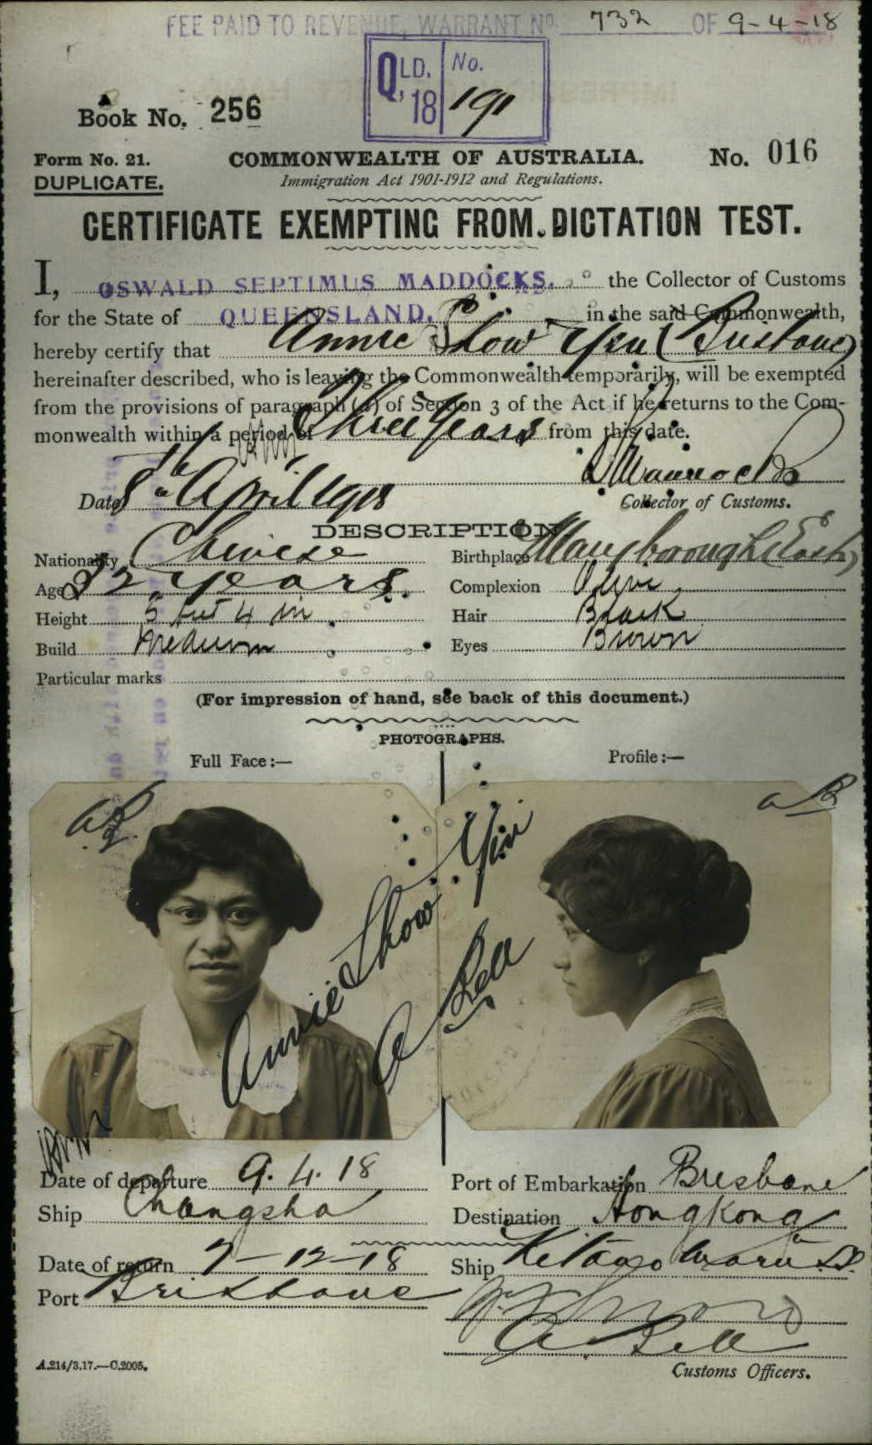 FEE PAID TO REVENUE, WARRANT No. 732 OF 9-4-18
QLD. 18 No. 191
Book No. 256
Form No. 21. COMMONWEALTH OF AUSTRALIA. No. 016
DUPLICATE. Immigration Act 1901-1912 and Regulations.
CERTIFICATE EXEMPTING FROM DICTATION TEST.
I, OSWALD SEPTIMUS MADDOCKS. the Collector of Customs
for the State of QUEENSLAND. in the said Commonwealth,
hereby certify that Annie Show Yin (Brisbane)
hereinafter described, who is leaving the Commonwealth temporarily, will be exempted
from the provisions of paragraph (a) of Section 3 of the Act if he returns to the Com-
monwealth within a period of Three Years from this date.
Date 8th April 1918 Collector of Customs.
DESCRIPTION
Nationality Chinese Birthplace Maryborough
Age 32 years. Complexion Olive
Height 5 feet 4 in Hair Black
Build Medium Eyes Brown
Particular marks
(For impression of hand, see back of this document.)
PHOTOGRAPHS.
Full Face:— Profile:—
Annie Show Yin
A Bell
Date of departure 9.4.18 Port of Embarkation Brisbane
Ship Changsha Destination Hongkong
Date of return 7-12-18 Ship Kitano Maru
Port Brisbane
A. Bell
Customs Officers.
A.214/3.17.—C.2005.